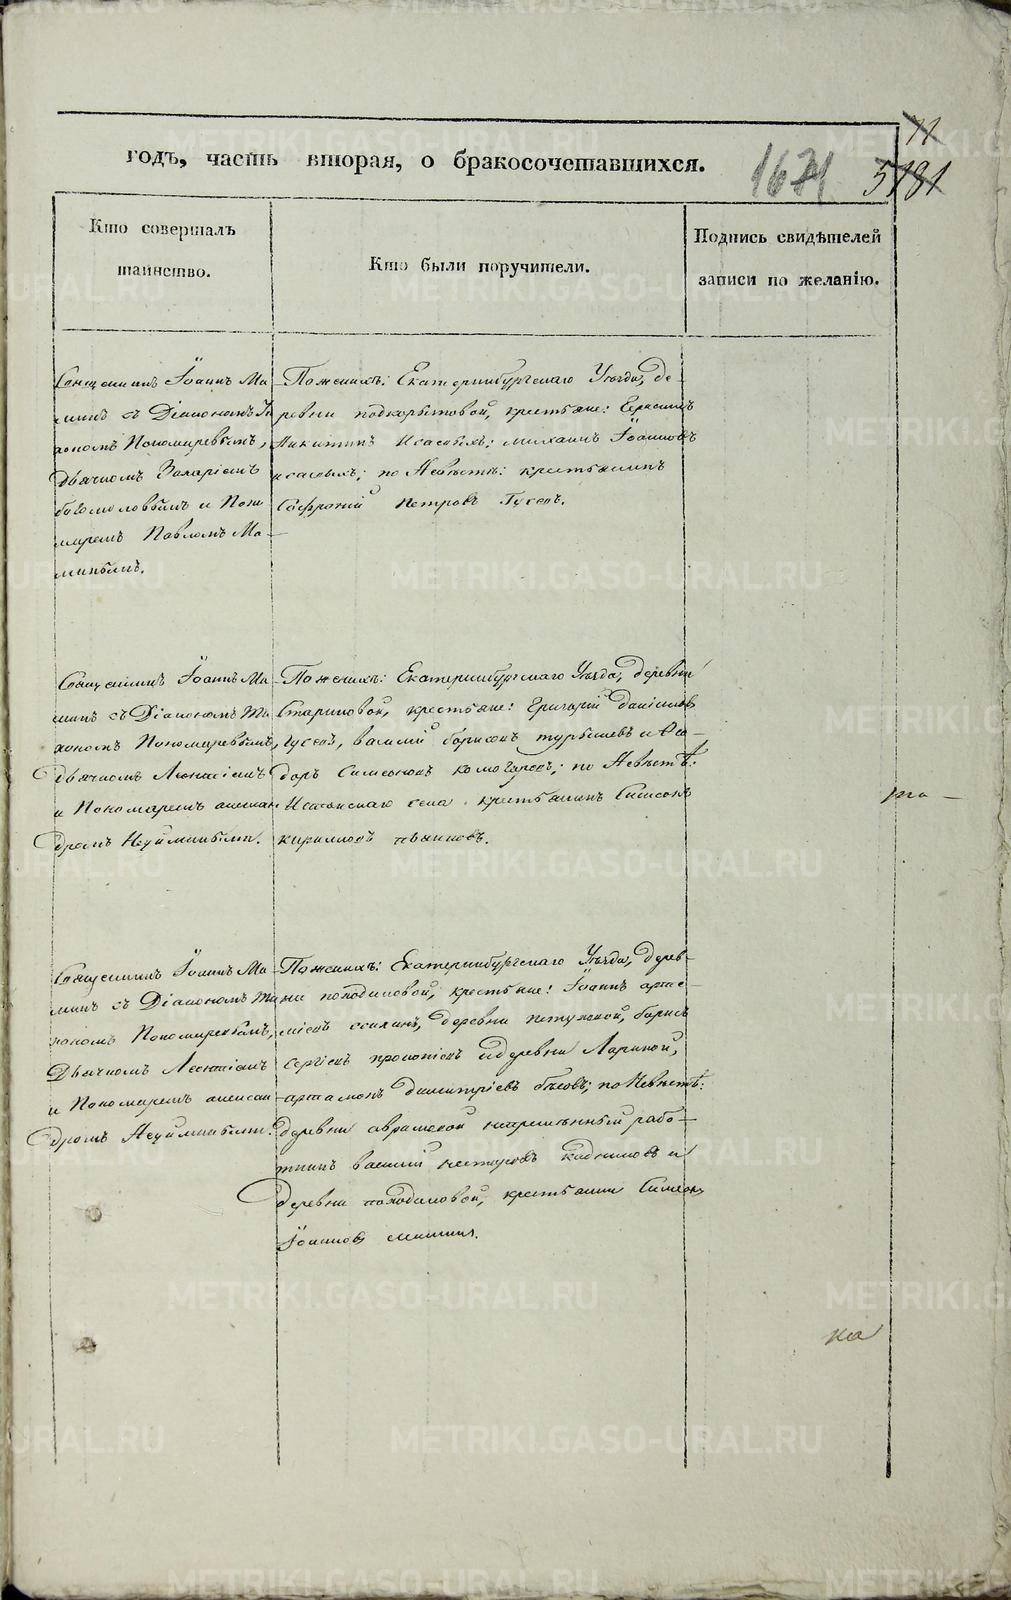 годъ, часть вторая, о бракосочетавшихся.
11
1671
5181
Кто совершалъ
таинство.
Кто были поручители.
Подпись свидѣтелей
записи по желанію.
Священникъ Іоаннъ Ма
минъ съ Діакономъ
Пономаревымъ,
дьячкомъ Захаріемъ
богомоловымъ и Поно
маремъ Павломъ Ма-
минымъ.
По женихѣ: Екатеринбургскаго Уѣзда, де-
ревни подкорытовой, крестьяне: Герасимъ
Никитинъ Исаевыхъ; михаилъ Іоанновъ
исаевыхъ; по Невѣстѣ: крестьянинъ
Софроній Петровъ Гусевъ.
Священникъ Іоаннъ Ма
минъ съ Діакономъ
Пономаревымъ,
дьячкомъ Леонтіемъ
и Пономаремъ алексан
дромъ Неуйминымъ.
По женихѣ: Екатеринбургскаго Уѣзда, деревни
крестьяне: Григорій даніиловъ
Гусевъ, василій борисовъ турышевъ и Ѳео-
доръ Симеоновъ комогаровъ; по Невѣстѣ:
села крестьянинъ Симеонъ
кирилловъ
та-
Священникъ Іоаннъ Ма
минъ съ Діакономъ
Пономаревымъ,
Дьячкомъ Леонтіемъ
и Пономаремъ алексан
дромъ Неуйминымъ.
По женихѣ: Екатеринбургскаго Уѣзда, дерев-
ни походиловой, крестьяне: Іоаннъ арте-
міевъ деревни петуховой, борисъ
сергіевъ и деревни Лариной,
артамонъ димитріевъ бѣсовъ; по Невѣстѣ:
деревни аврамовой рабо-
тникъ василій несторовъ и
деревни походиловой, крестьянинъ Симеонъ
Іоанновъ
ка
METRIKI.GASO-URAL.RU